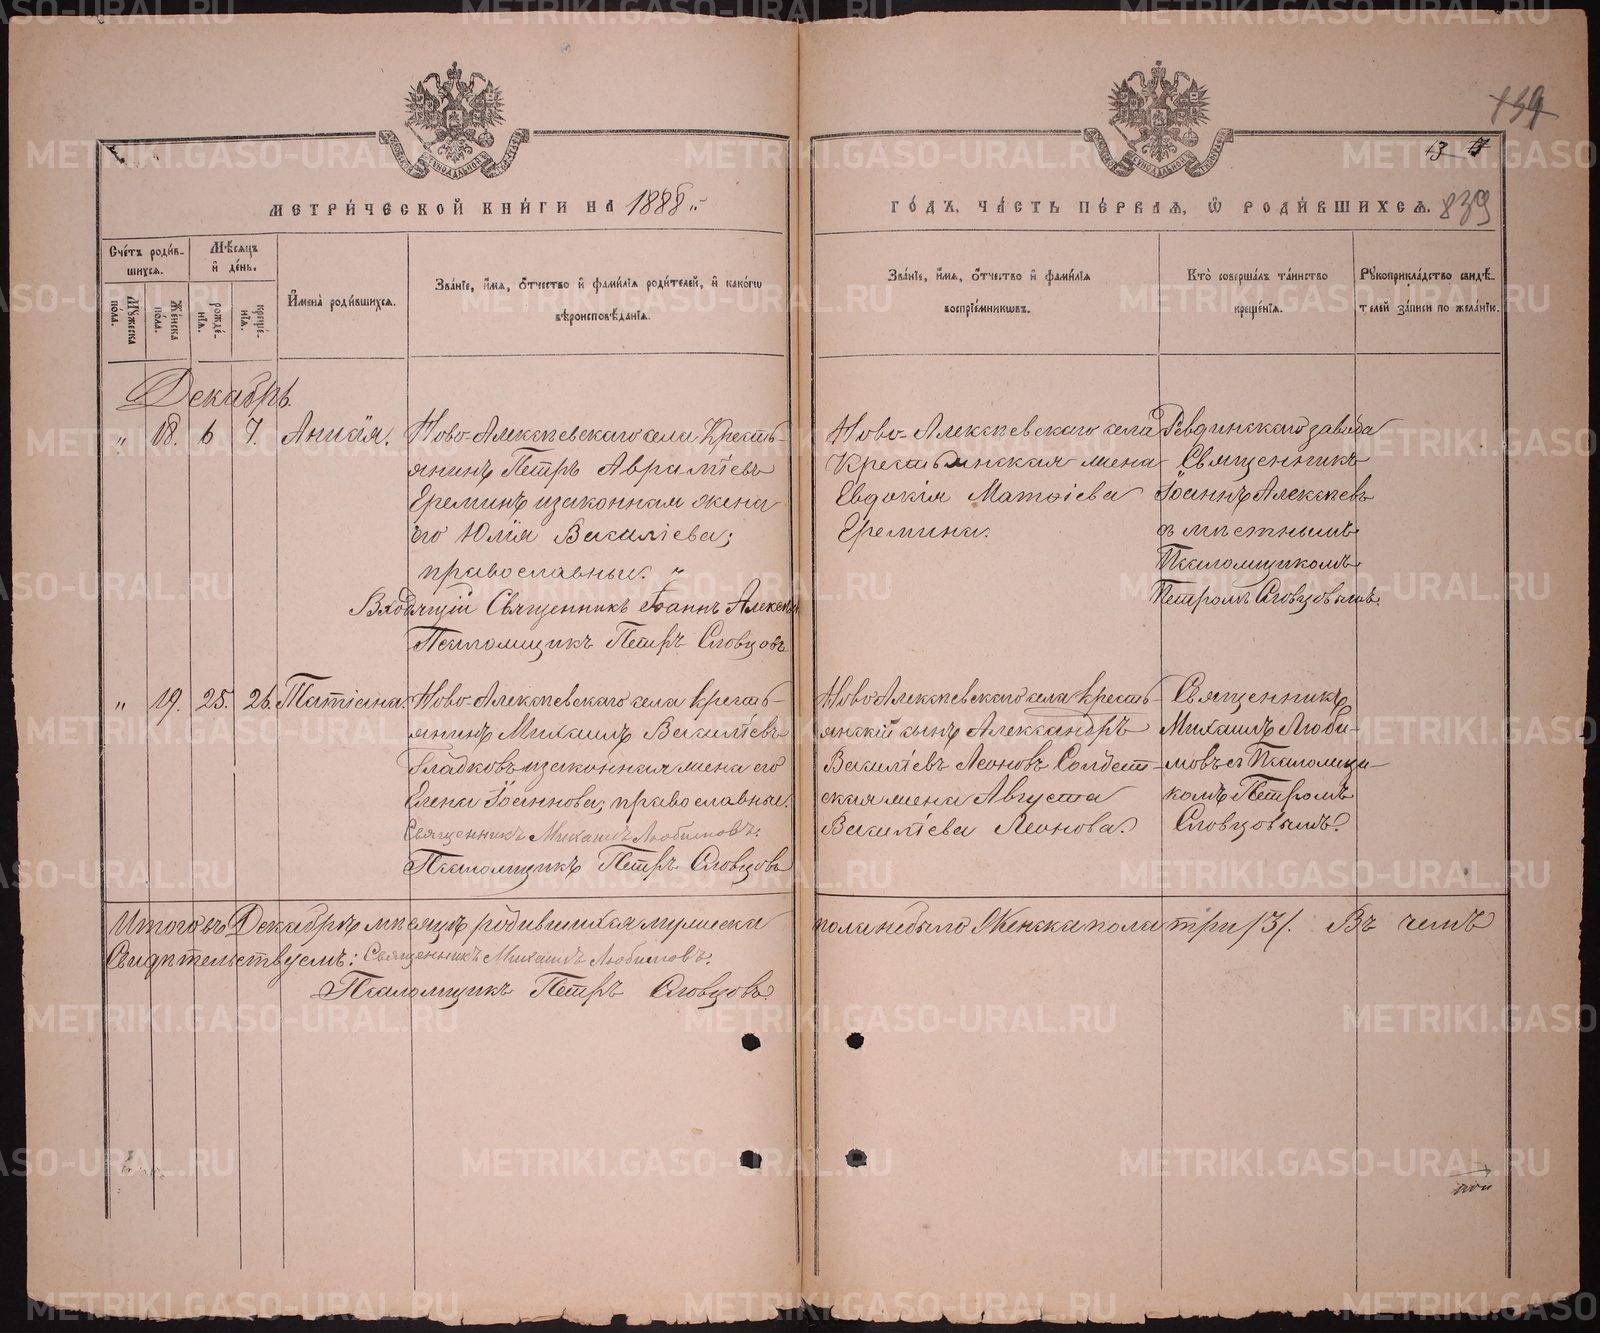 839
13
МЕТРИ́ЧЕСКОЙ КНИ́ГИ НА 1888.
ГО́ДЪ, ЧА́СТЬ ПЕ́РВАѦ, Ѡ РОДИ́ВШИХСѦ. 839
Сче́тъ роди́в-
шихсѧ.
Мѣ́сѧцъ
и де́нь.
Мꙋ́жеска
по́ла.
Же́нска
по́ла.
рожде́-
нїѧ.
креще́-
нїѧ.
И҆мена̀ роди́вшихсѧ.
Зва́нїе, и҆́мѧ, ѻ҆́тчество и҆ фами́лїѧ роди́телей, и҆ како́гѡ
вѣроисповѣ́данїѧ.
Зва́нїе, и҆́мѧ, ѻ҆́тчество и҆ фами́лїѧ
воспрїе́мникѡвъ.
Кто̀ соверша́лъ та́инство
креще́нїѧ.
Рꙋкоприкла́дство свидѣ́-
телей за́писи по жела́нїю.
Декабрь.
" 18. 6 7. Анисія.
Ново-Алексѣевскаго села Кресть-
янинъ Петръ Аврамїевъ
Ереминъ и законная жена
его Юлїя Василіева;
православные. "
Входящій Священникъ Іоаннъ Алексѣ
Псаломщикъ Петръ Словцовъ
Ново-Алексѣевскаго села
Крестьянская жена
Евдокія Матѳіева
Еремина.
Ревдинскаго завода
Священникъ
Іоаннъ Алексѣевъ
съ мѣстнымъ
Псаломщикомъ
Петромъ Словцовымъ.
" 19. 25. 26. Татіана.
Ново-Алексѣевскаго села кресть-
янинъ Михаилъ Василіевъ
Гладковъ и законная жена его
Елена Іоаннова; православные.
Священникъ Михаилъ Любимовъ.
Псаломщикъ Петръ Словцовъ
Ново-Алексѣевскаго села кресть-
янскій сынъ Александръ
Василіевъ Леоновъ Солдат-
ская жена Августа
Василіева Леонова.
Священникъ
Михаилъ Люби-
мовъ съ Псаломщи-
комъ Петромъ
Словцовымъ.
Итого въ Декабрѣ мѣсяцѣ родившихся мужеска
пола не было Женска пола три /3/. Въ чемъ
Свидѣтельствуемъ: Священникъ Михаилъ Любимовъ.
Псаломщикъ Петръ Словцовъ.
METRIKI.GASO-URAL.RU